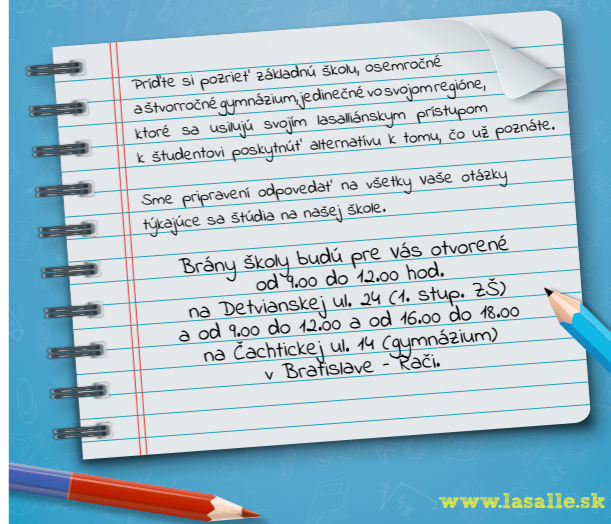 Príďte si pozrieť základnú školu, osemročné
a štvorročné gymnázium, jedinečné vo svojom regióne,
ktoré sa usilujú svojím lasalliánskym prístupom
k študentovi poskytnúť alternatívu k tomu, čo už poznáte.
Sme pripravení odpovedať na všetky Vaše otázky
týkajúce sa štúdia na našej škole.
Brány školy budú pre Vás otvorené
od 9.00 do 12.00 hod.
na Detvianskej ul. 24 (1. stup. ZŠ)
a od 9.00 do 12.00 a od 16.00 do 18.00
na Čachtickej ul. 14 (gymnázium)
v Bratislave - Rači.
www.lasalle.sk